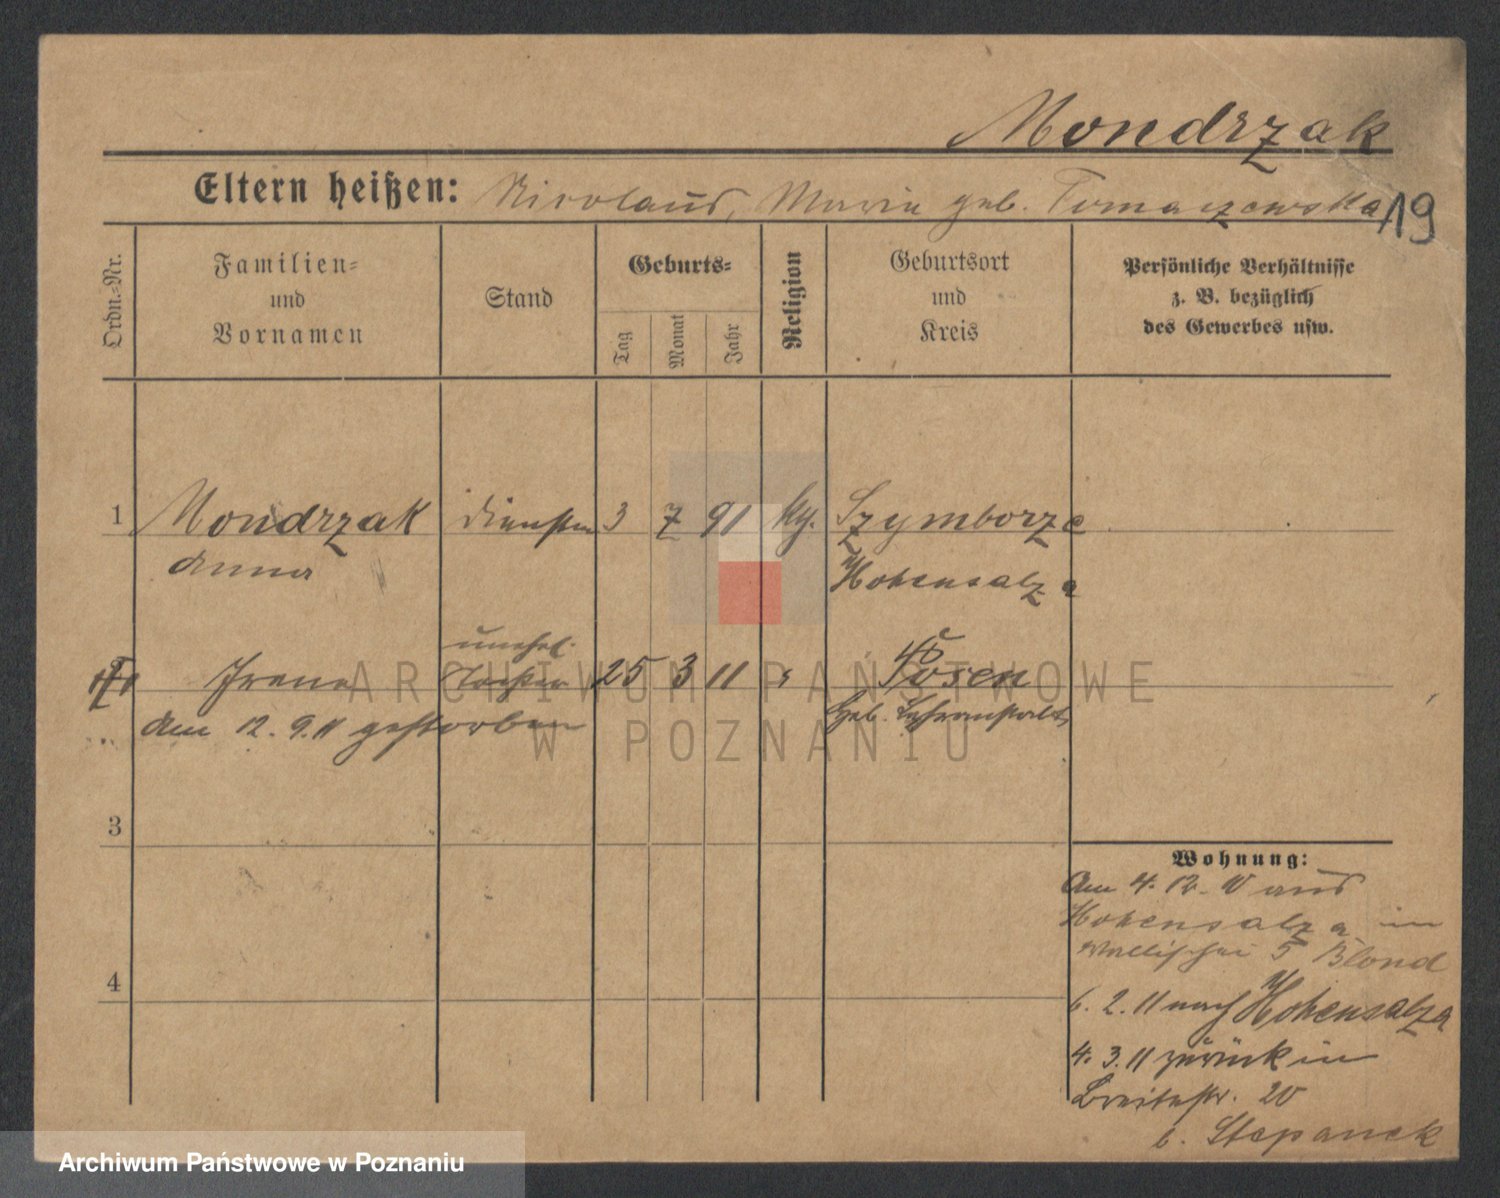 Mondrzak
Eltern heißen: Nicolaus, Marie geb. Tomaszewska 19
Ordn.-Nr.
Familien-
und
Vornamen
Stand
Geburts-
Tag
Monat
Jahr
Religion
Geburtsort
und
Kreis
Persönliche Verhältnisse
z. B. bezüglich
des Gewerbes usw.
1 Mondrzak 3 7 91 Szymborze
Anna Hohensalza
unehel.
Irene Tochter 25 3 11 Posen
am 12. 9. 11 gestorben geb.
3
4
Wohnung:
Am 4. 12. 10 aus
Hohensalza in
Wallischei 5 Blond
6. 2. 11 nach Hohensalza
4. 3. 11 zurück in
Breitestr. 20
b. Stepanek
ARCHIWUM PAŃSTWOWE
W POZNANIU
Archiwum Państwowe w Poznaniu